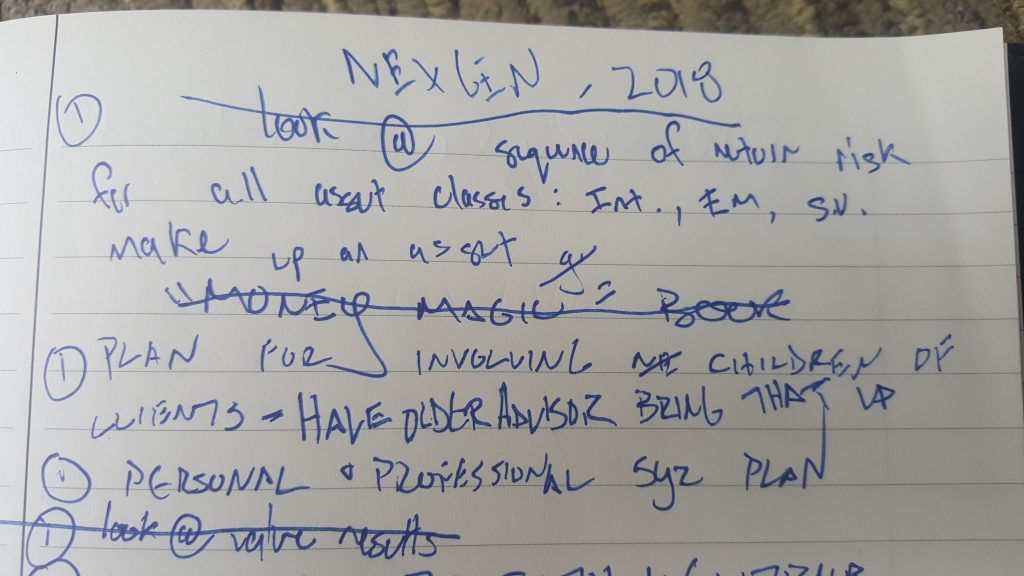 NEXGEN, 2018
① look @ sequence of return risk
for all asset classes: Int., EM, SV.
make up an asset
"MONEY MAGIC" = BOOK
① PLAN FOR INVOLVING CHILDREN OF
CLIENTS - HAVE OLDER ADVISOR BRING THAT UP
① PERSONAL & PROFESSIONAL 5yr PLAN
① look @ value results